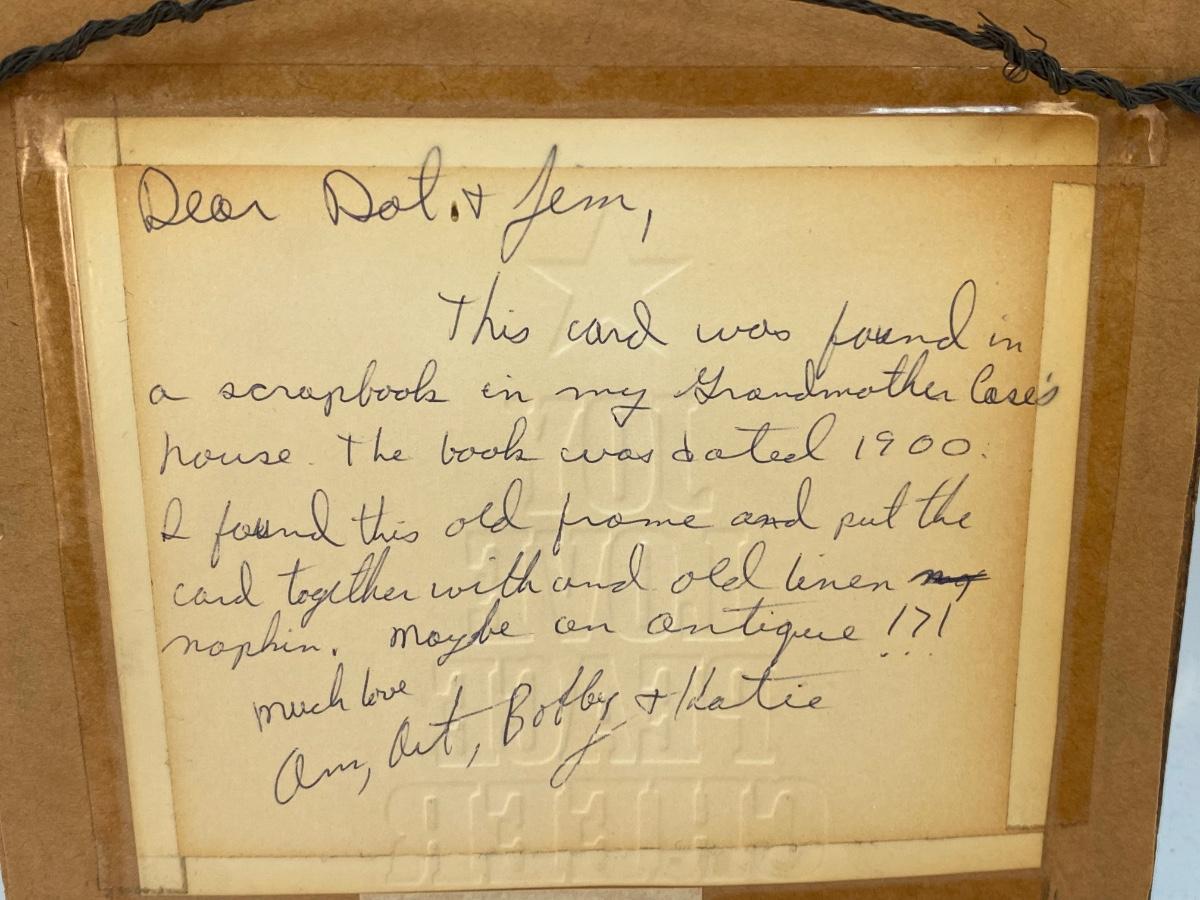 Dear Dot. & Jem,
This card was found in
a scrapbook in my Grandmother Case's
house. The book was dated 1900.
I found this old frame and put the
card together with and old linen
napkin. Maybe an antique !?!
much love
Ann, Art, Bobby & Katie
JOY
LOVE
PEACE
CHEER